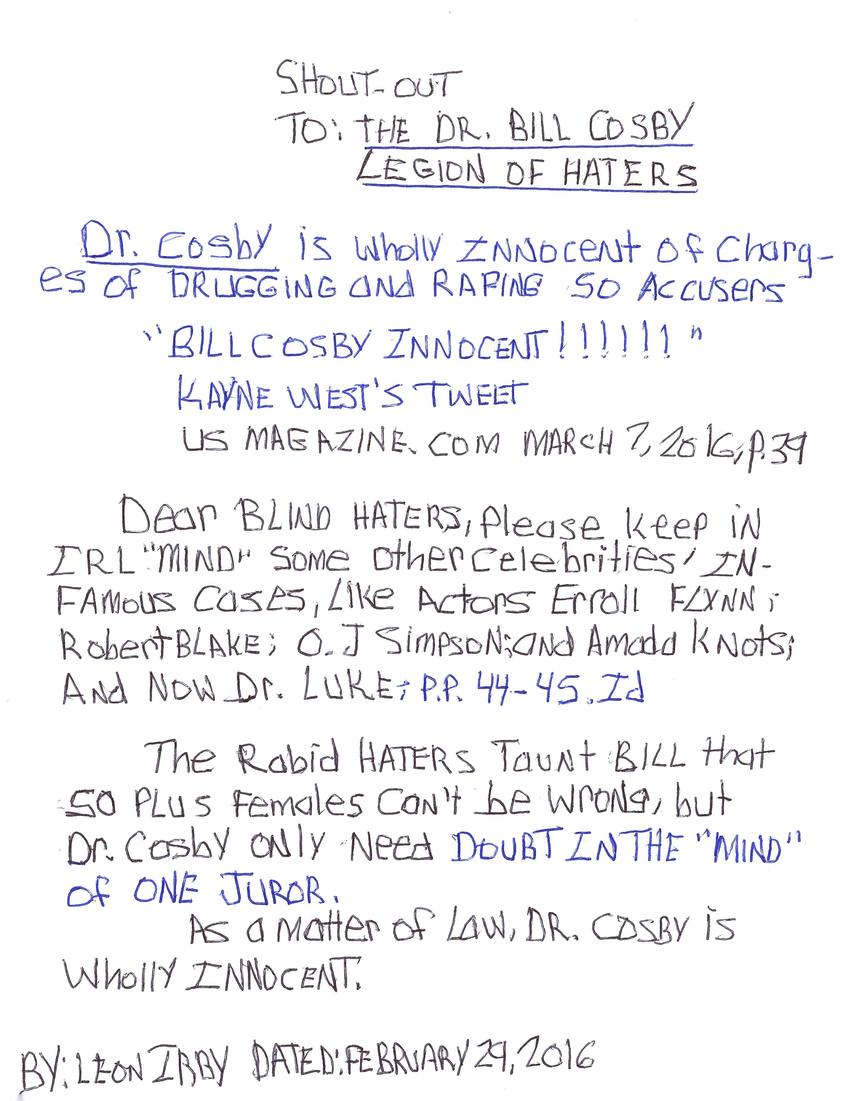 SHOUT-OUT
TO: THE DR. BILL COSBY
LEGION OF HATERS
Dr. Cosby is Wholly INNOCENT OF Charg-
es of DRUGGING AND RAPING 50 Accusers
"BILL COSBY INNOCENT!!!!!!"
KAYNE WEST'S TWEET
US MAGAZINE.COM MARCH 7, 2016, p.39
Dear BLIND HATERS, Please keep iN
IRL "MIND" Some other celebrities' IN-
FAMOUS Cases, Like Actors Erroll FLYNN;
Robert BLAKE; O.J Simpson; and Amada Knots;
And Now Dr. LUKE; P.P. 44-45. Id
The Rabid HATERS Taunt BILL that
50 PLUS Females Can't be Wrong, but
Dr. Cosby only Need DOUBT IN THE "MIND"
of ONE JUROR.
As a Matter of Law, DR. COSBY is
Wholly INNOCENT.
BY: LEON IRBY DATED: FEBRUARY 29, 2016